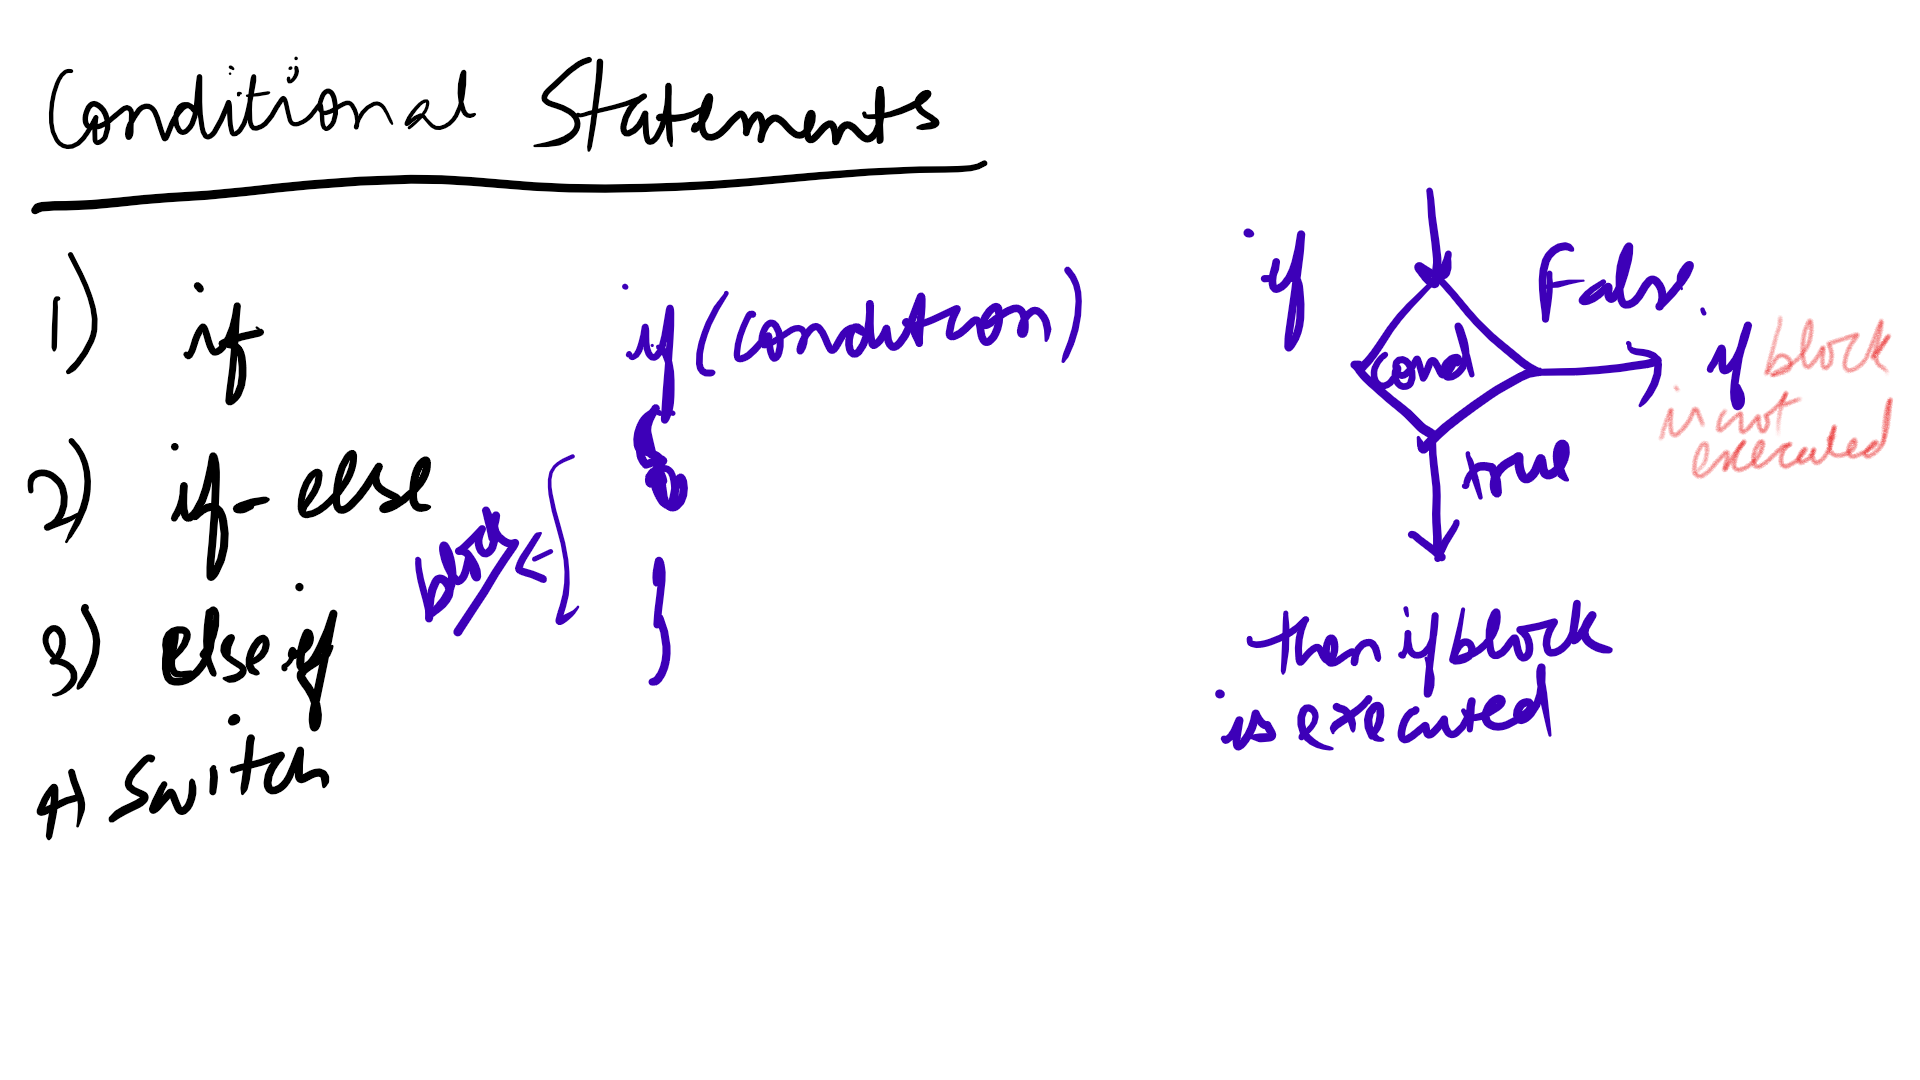 Conditional Statements
1) if
2) if-else
3) else if
4) switch
if (condition)
{
}
block
if
cond
False
if block
is not
executed
true
then if block
is executed